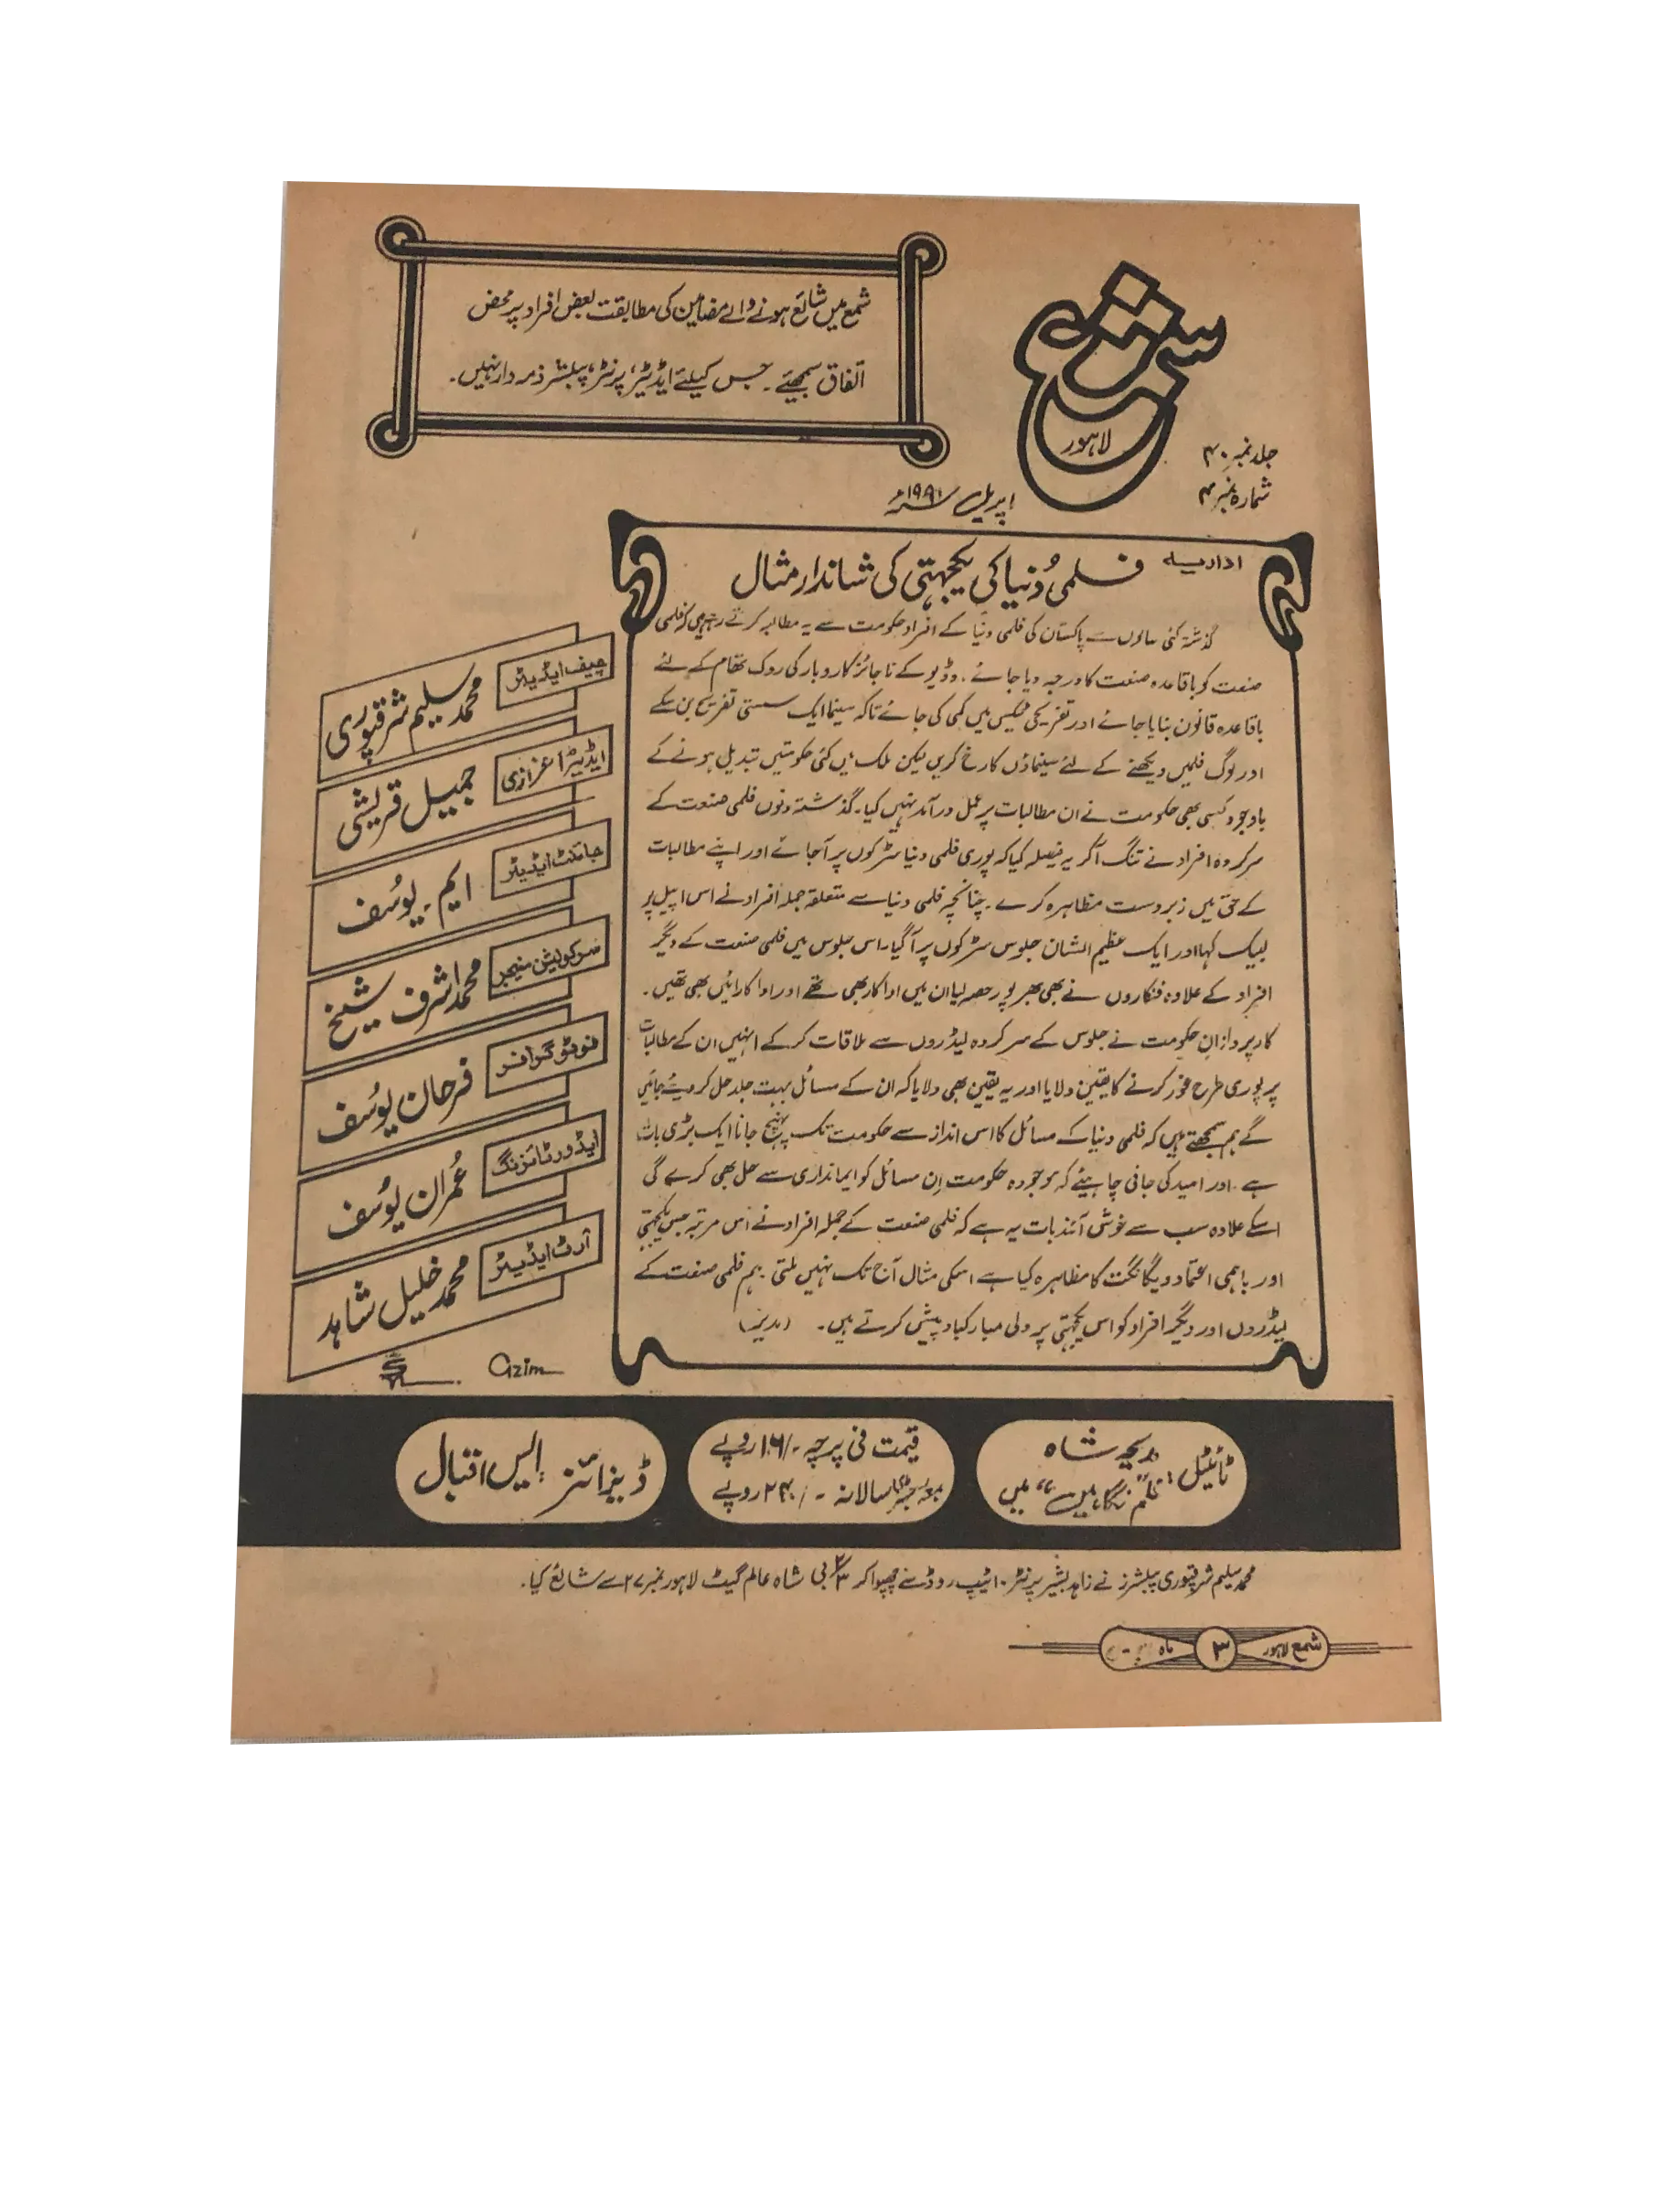 شمع میں شائع ہونے والے مضامین کی مطابقت بعض افراد پر محض
اتفاق سمجھیئے۔ جس کیلئے ایڈیٹر، پرنٹر، پبلشر ذمہ دار نہیں۔
شمع
لاہور
جلد نمبر ۴۰
شمارہ نمبر ۴
اپریل ۱۹۹۱ء
اداریہ
فلمی دُنیا کی یکجہتی کی شاندار مثال
گذشتہ کئی سالوں سے پاکستان کی فلمی دنیا کے افراد حکومت سے یہ مطالبہ کرتے رہے ہیں کہ فلمی
صنعت کو باقاعدہ صنعت کا درجہ دیا جائے، وڈیو کے ناجائز کاروبار کی روک تھام کے لئے
باقاعدہ قانون بنایا جائے اور تفریحی ٹیکس میں کمی کی جائے تاکہ سینما ایک سستی تفریح بن سکے
اور لوگ فلمیں دیکھنے کے لئے سینماؤں کا رخ کریں لیکن ملک میں کئی حکومتیں تبدیل ہونے کے
باوجود کسی بھی حکومت نے ان مطالبات پر عمل درآمد نہیں کیا۔ گذشتہ دنوں فلمی صنعت کے
سرکردہ افراد نے تنگ آکر یہ فیصلہ کیا کہ پوری فلمی دنیا سڑکوں پر آجائے اور اپنے مطالبات
کے حق میں زبردست مظاہرہ کرے۔ چنانچہ فلمی دنیا سے متعلقہ جملہ افراد نے اس اپیل پر
لبیک کہا اور ایک عظیم الشان جلوس سڑکوں پر آگیا۔ اس جلوس میں فلمی صنعت کے دیگر
افراد کے علاوہ فنکاروں نے بھی بھرپور حصہ لیا ان میں اداکار بھی تھے اور اداکارائیں بھی تھیں۔
کارپردازانِ حکومت نے جلوس کے سرکردہ لیڈروں سے ملاقات کرکے انہیں ان کے مطالبات
پر پوری طرح غور کرنے کا یقین دلایا اور یہ یقین بھی دلایا کہ ان کے مسائل بہت جلد حل کر دیئے جائیں
گے ہم سمجھتے ہیں کہ فلمی دنیا کے مسائل کا اس انداز سے حکومت تک پہنچ جانا ایک بڑی بات
ہے۔ اور امید کی جانی چاہیئے کہ موجودہ حکومت اِن مسائل کو ایمانداری سے حل بھی کرے گی
اسکے علاوہ سب سے خوش آئند بات یہ ہے کہ فلمی صنعت کے جملہ افراد نے اس مرتبہ جس یکجہتی
اور باہمی اعتماد و یگانگت کا مظاہرہ کیا ہے اسکی مثال آج تک نہیں ملتی۔ ہم فلمی صنعت کے
لیڈروں اور دیگر افراد کو اس یکجہتی پر دلی مبارکباد پیش کرتے ہیں۔ (مدیر)
چیف ایڈیٹر
محمد سلیم شرقپوری
ایڈیٹر اعزازی
جمیل قریشی
جائنٹ ایڈیٹر
ایم۔ یوُسف
سرکولیشن منیجر
محمد اشرف شیخ
فوٹو گرافر
فرحان یوُسف
ایڈورٹائزنگ
عُمران یوُسف
آرٹ ایڈیٹر
محمد خلیل شاہد
Azim
ٹائیٹل: مدیحہ شاہ
فلم "نگاہیں" میں
قیمت فی پرچہ -/۱۶ روپے
بمعہ رجسٹری سالانہ -/۲۴۰ روپے
ڈیزائنر: ایس اقبال
محمد سلیم شرقپوری پبلشرز نے زاہد بشیر پرنٹر ۱۰ ٹیپ روڈ سے چھپوا کر ۲/۳ بی شاہ عالم گیٹ لاہور نمبر ۲۷ سے شائع کیا۔
شمع لاہور
۳
ماہ